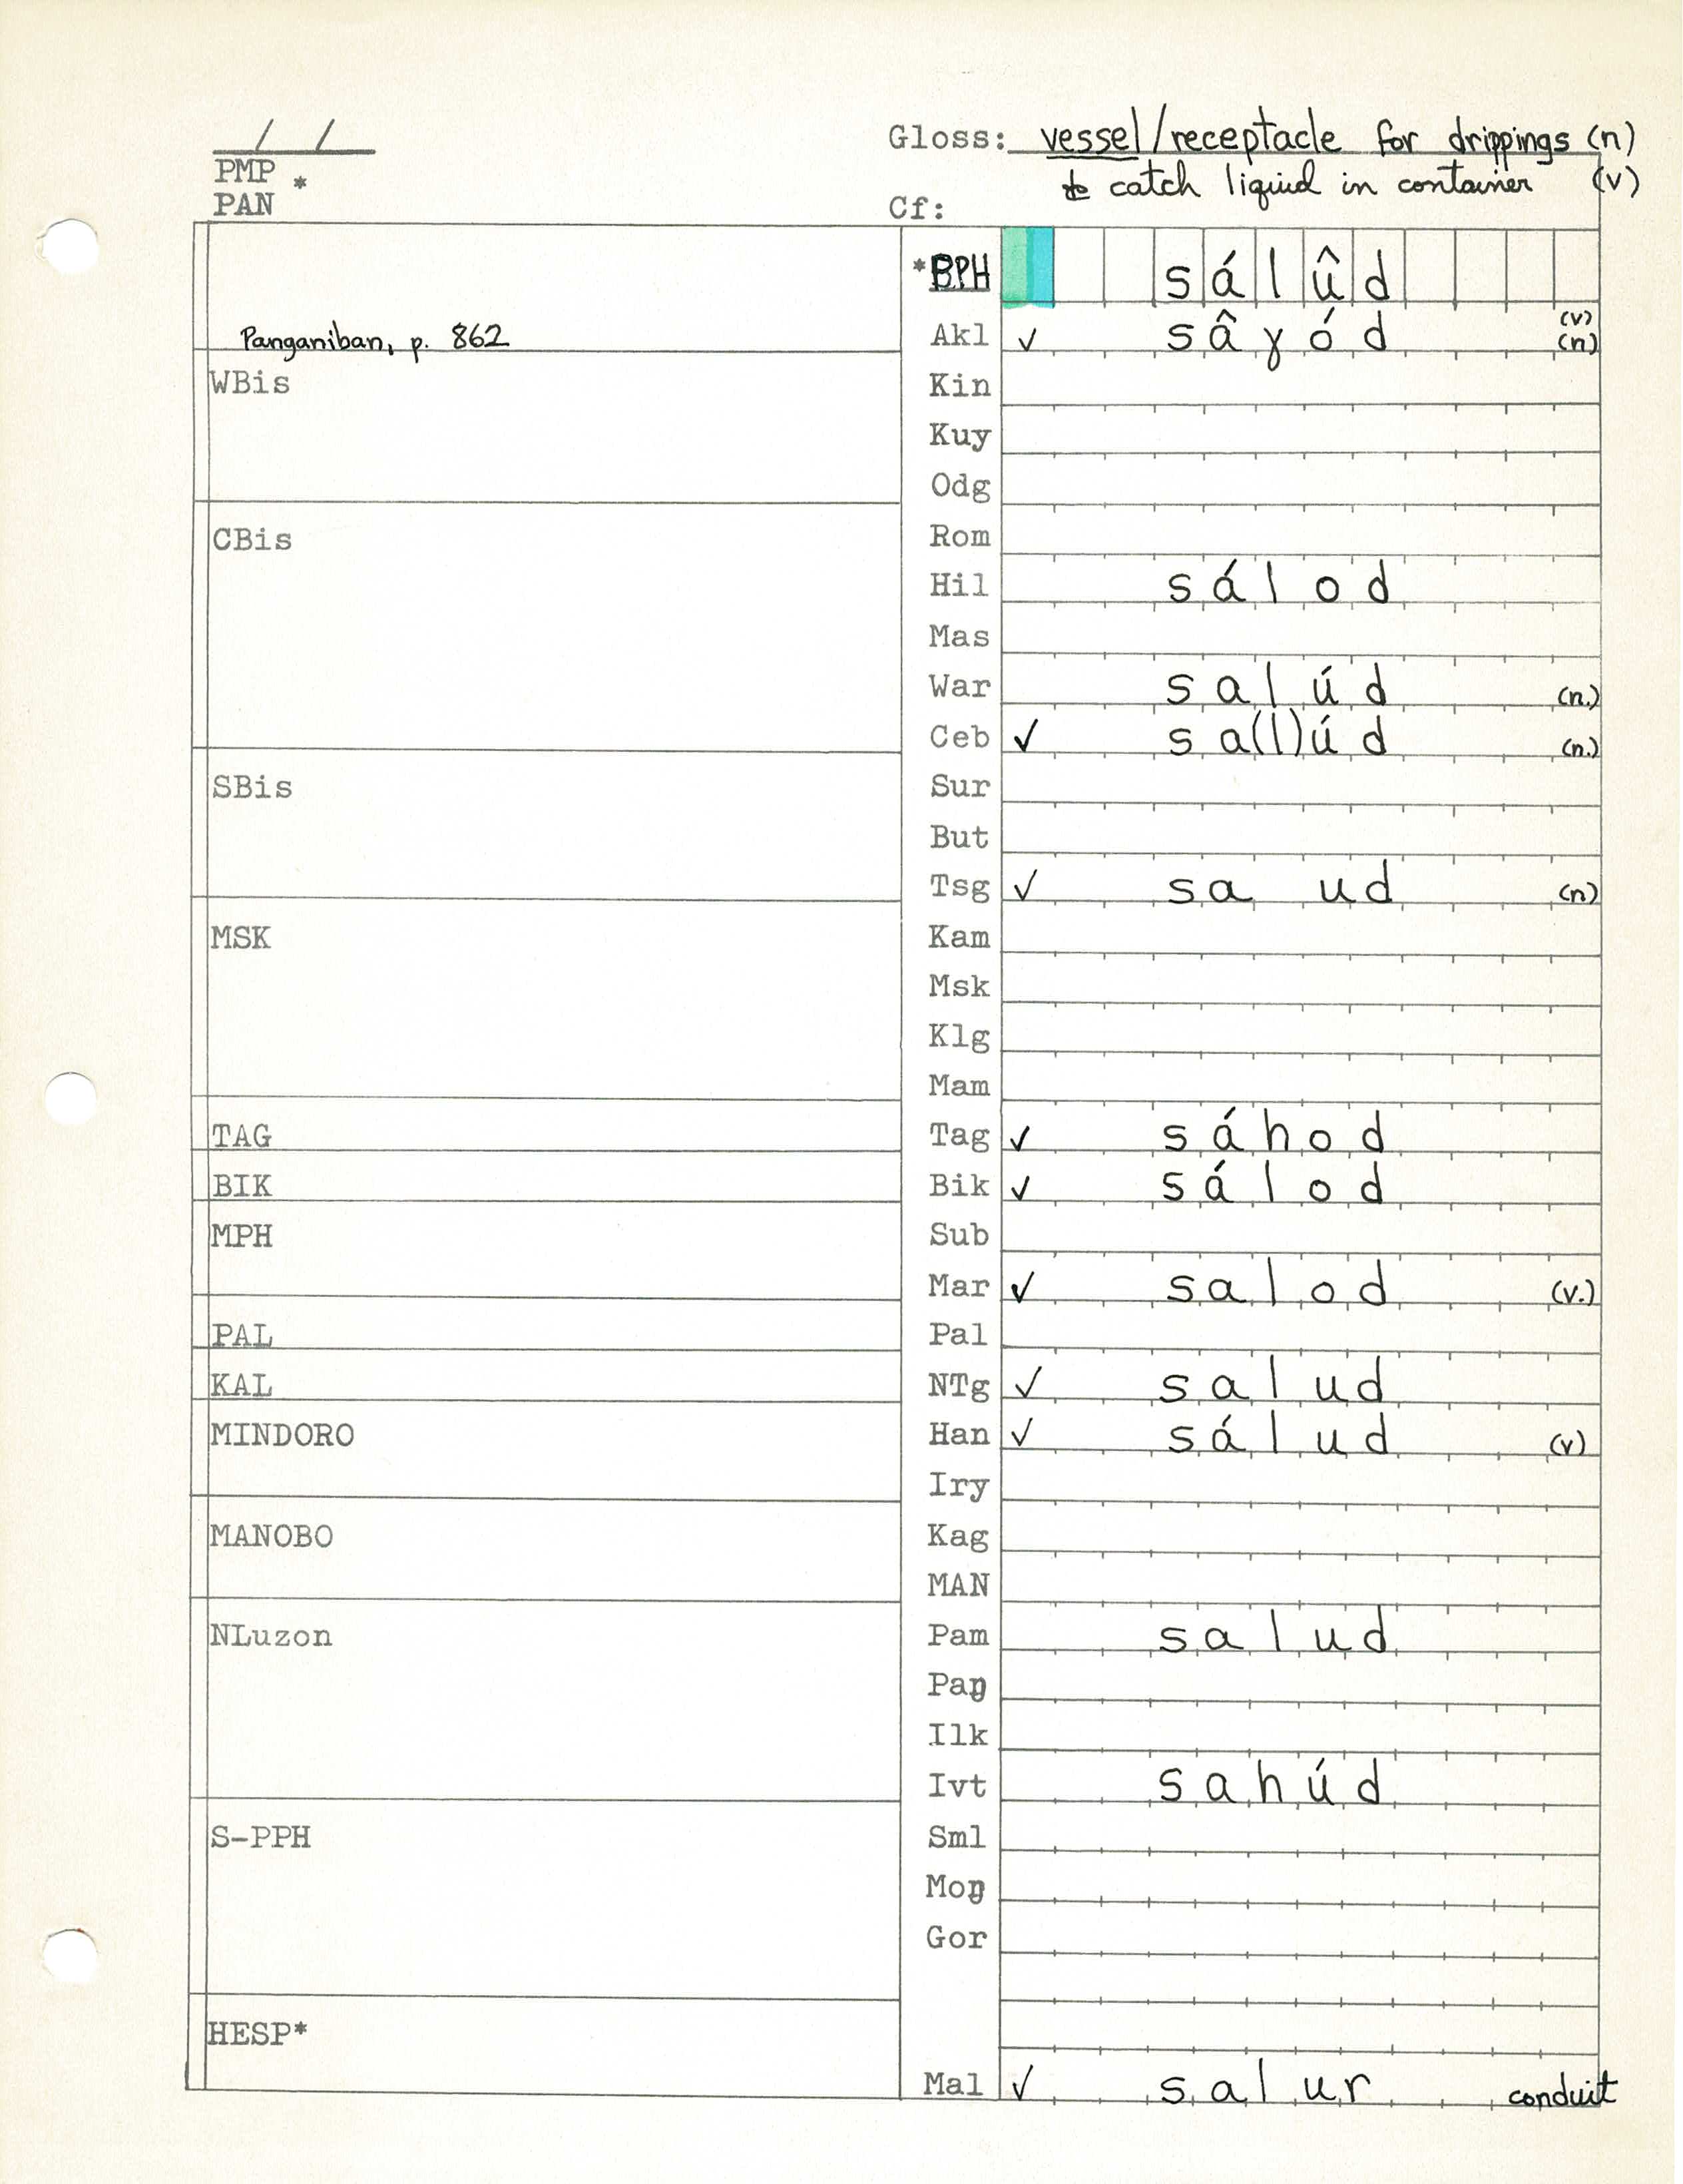 / /
PMP *
PAN
Gloss: vessel/receptacle for drippings (n)
to catch liquid in container (v)
Cf:
*BPH sálûd
Panganiban, p. 862
Akl ✓ sâɣód (v) (n)
WBis
Kin
Kuy
Odg
CBis
Rom
Hil sálod
Mas
War salúd (n.)
Ceb ✓ sa(l)úd (n.)
SBis
Sur
But
Tsg ✓ sa ud (n)
MSK
Kam
Msk
Klg
Mam
TAG
Tag ✓ sáhod
BIK
Bik ✓ sálod
MPH
Sub
Mar ✓ salod (v.)
PAL
Pal
KAL
NTg ✓ salud
MINDORO
Han ✓ sálud (v)
Iry
MANOBO
Kag
MAN
NLuzon
Pam salud
Paŋ
Ilk
Ivt sahúd
S-PPH
Sml
Moŋ
Gor
HESP*
Mal ✓ salur conduit